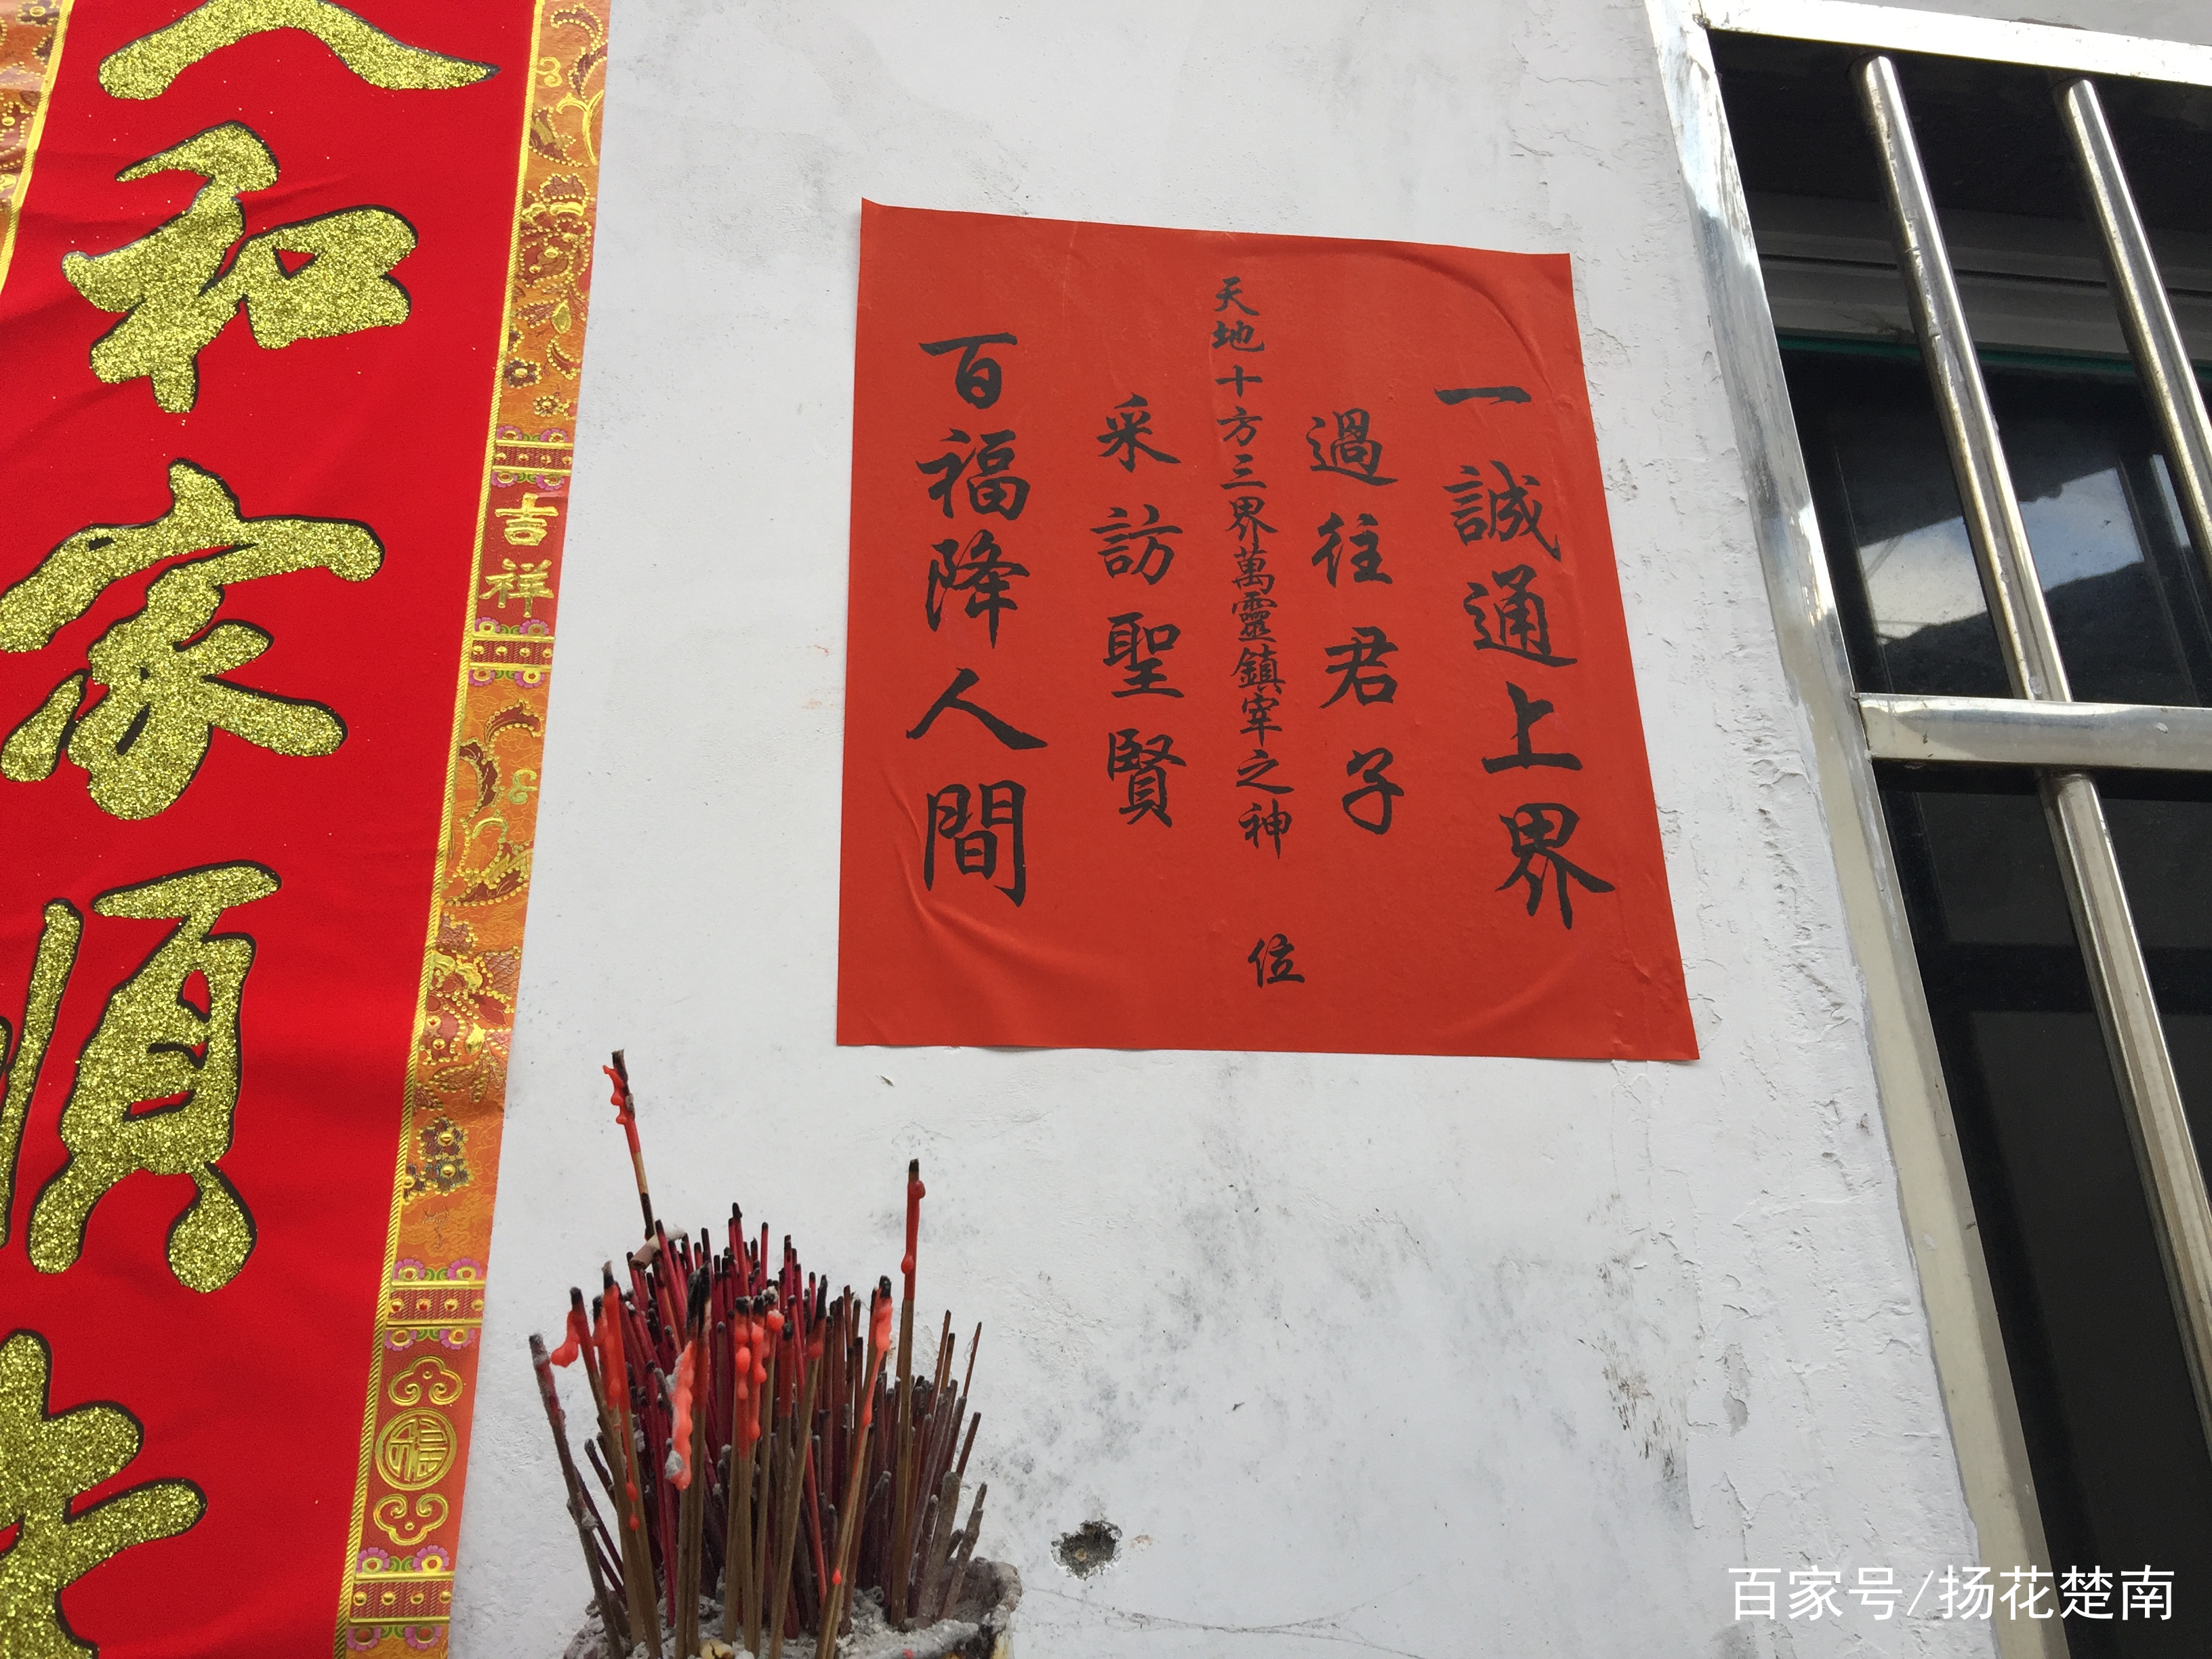 一誠通上界
過往君子
天地十方三界萬靈鎮宰之神 位
采訪聖賢
百福降人間
人和家順
吉祥
福
百家号/扬花楚南